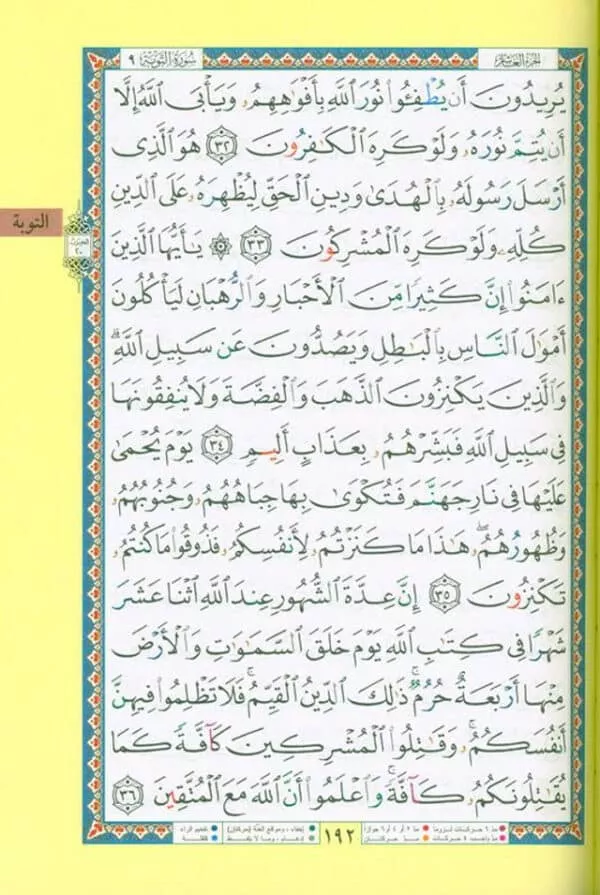 سُورَةُ التَّوْبَةِ ٩
الجزء العاشر
يُرِيدُونَ أَن يُطْفِـُٔوا۟ نُورَ ٱللَّهِ بِأَفْوَٰهِهِمْ وَيَأْبَى ٱللَّهُ إِلَّآ
أَن يُتِمَّ نُورَهُۥ وَلَوْ كَرِهَ ٱلْكَٰفِرُونَ ٣٢ هُوَ ٱلَّذِىٓ
أَرْسَلَ رَسُولَهُۥ بِٱلْهُدَىٰ وَدِينِ ٱلْحَقِّ لِيُظْهِرَهُۥ عَلَى ٱلدِّينِ
كُلِّهِۦ وَلَوْ كَرِهَ ٱلْمُشْرِكُونَ ٣٣ ۞ يَٰٓأَيُّهَا ٱلَّذِينَ
ءَامَنُوٓا۟ إِنَّ كَثِيرًا مِّنَ ٱلْأَحْبَارِ وَٱلرُّهْبَانِ لَيَأْكُلُونَ
أَمْوَٰلَ ٱلنَّاسِ بِٱلْبَٰطِلِ وَيَصُدُّونَ عَن سَبِيلِ ٱللَّهِ ۗ
وَٱلَّذِينَ يَكْنِزُونَ ٱلذَّهَبَ وَٱلْفِضَّةَ وَلَا يُنفِقُونَهَا
فِى سَبِيلِ ٱللَّهِ فَبَشِّرْهُم بِعَذَابٍ أَلِيمٍ ٣٤ يَوْمَ يُحْمَىٰ
عَلَيْهَا فِى نَارِ جَهَنَّمَ فَتُكْوَىٰ بِهَا جِبَاهُهُمْ وَجُنُوبُهُمْ
وَظُهُورُهُمْ ۖ هَٰذَا مَا كَنَزْتُمْ لِأَنفُسِكُمْ فَذُوقُوا۟ مَا كُنتُمْ
تَكْنِزُونَ ٣٥ إِنَّ عِدَّةَ ٱلشُّهُورِ عِندَ ٱللَّهِ ٱثْنَا عَشَرَ
شَهْرًا فِى كِتَٰبِ ٱللَّهِ يَوْمَ خَلَقَ ٱلسَّمَٰوَٰتِ وَٱلْأَرْضَ
مِنْهَآ أَرْبَعَةٌ حُرُمٌ ۚ ذَٰلِكَ ٱلدِّينُ ٱلْقَيِّمُ ۚ فَلَا تَظْلِمُوا۟ فِيهِنَّ
أَنفُسَكُمْ ۚ وَقَٰتِلُوا۟ ٱلْمُشْرِكِينَ كَآفَّةً كَمَا
يُقَٰتِلُونَكُمْ كَآفَّةً ۚ وَٱعْلَمُوٓا۟ أَنَّ ٱللَّهَ مَعَ ٱلْمُتَّقِينَ ٣٦
التوبة
الحزب
٢٠
١٩٢
مدّ ٦ حركات لزوما
مدّ ٢ أو ٤ أو ٦ جوازا
مدّ حركتان
إخفاء، ومواقع الغنّة (حركتان)
إدغام، وما لا يلفظ
تفخيم الراء
قلقلة